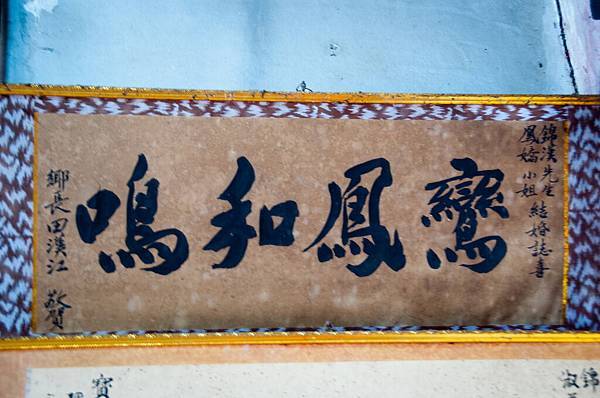 錦漢先生
鳳嬌小姐
結婚誌喜
鸞鳳和鳴
鄉長田漢江 敬賀
錦
淑
寶